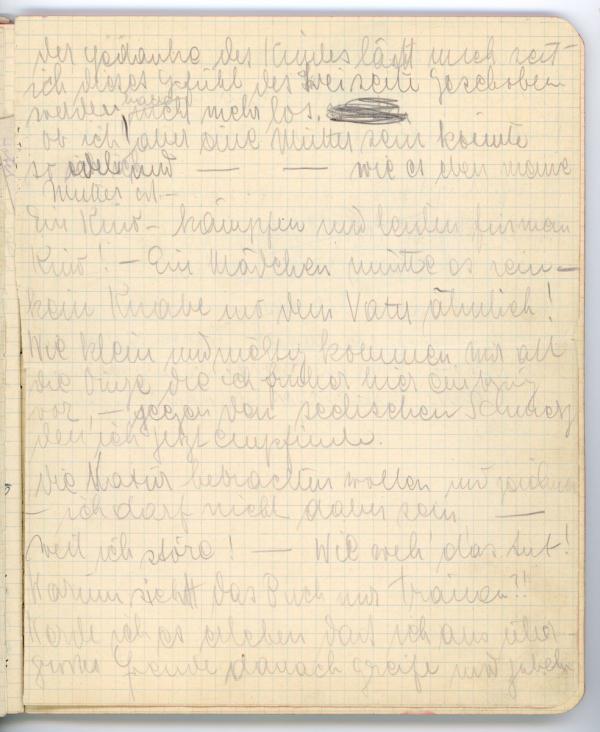 der Gedanke des Kindes läßt mich seit
ich dieses Gefühl des beiseite geschoben
werden nicht mehr los.
ob ich aber eine Mutter sein könnte
so und — — wie es eben meine
Mutter ist —
Ein Kind – kämpfen und leiden für mein
Kind! – Ein Mädchen müßte es sein –
kein Knabe und dem Vater ähnlich!
Wie klein und nichtig kommen mir all
die Dinge die ich früher hier eintrug
vor, – gegen den seelischen Schmerz
den ich jetzt empfinde.
Die Natur betrachten wollen und
– ich darf nicht dabei sein —
weil ich störe! — Wie weh' das tut!
Warum sieht das Buch nur Tränen?!
Werde ich es erleben daß ich aus über-
großer Freude danach greife und